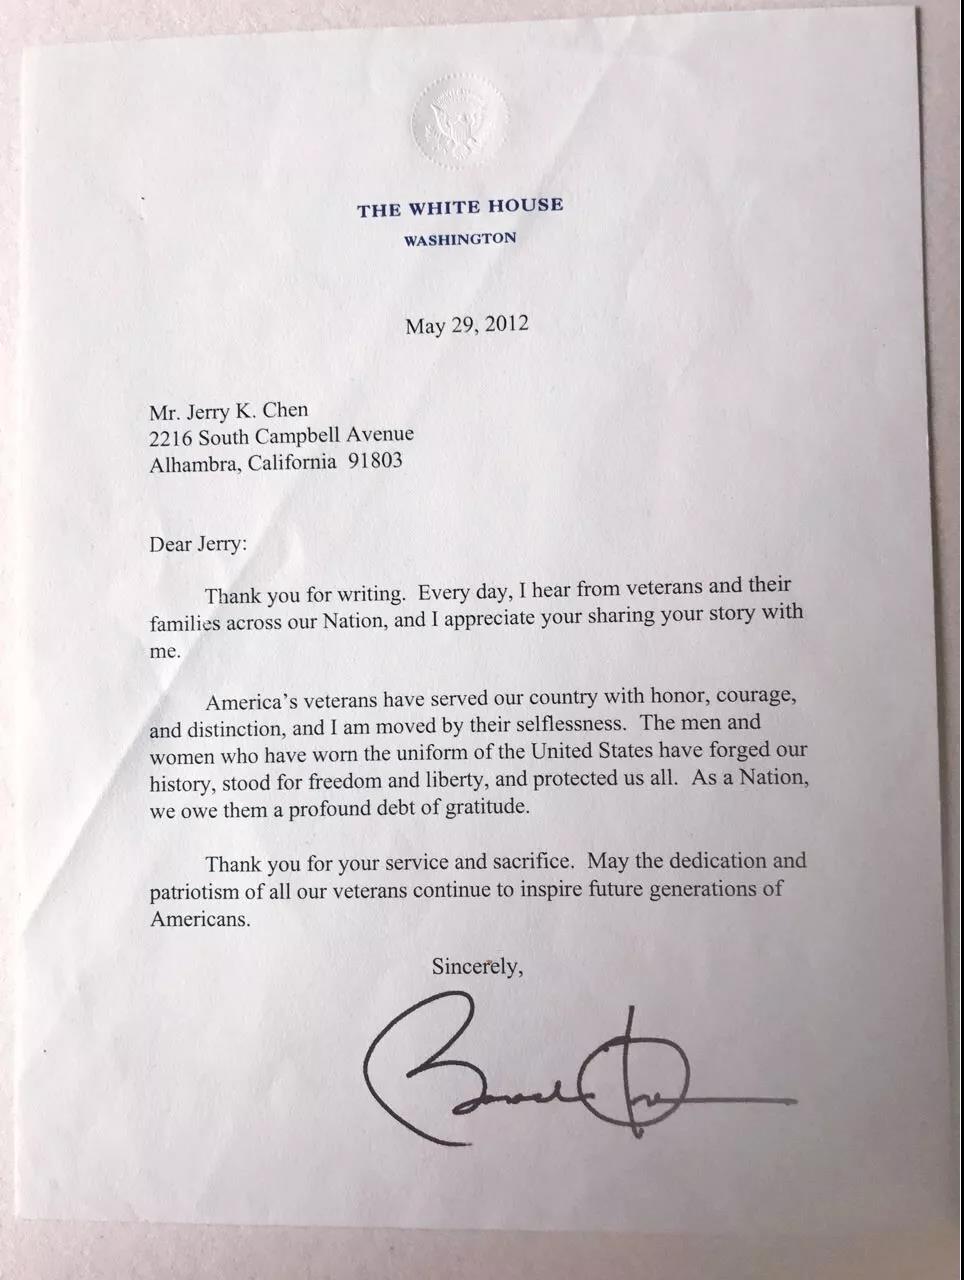 THE WHITE HOUSE
WASHINGTON
May 29, 2012
Mr. Jerry K. Chen
2216 South Campbell Avenue
Alhambra, California 91803
Dear Jerry:
Thank you for writing. Every day, I hear from veterans and their
families across our Nation, and I appreciate your sharing your story with
me.
America’s veterans have served our country with honor, courage,
and distinction, and I am moved by their selflessness. The men and
women who have worn the uniform of the United States have forged our
history, stood for freedom and liberty, and protected us all. As a Nation,
we owe them a profound debt of gratitude.
Thank you for your service and sacrifice. May the dedication and
patriotism of all our veterans continue to inspire future generations of
Americans.
Sincerely,